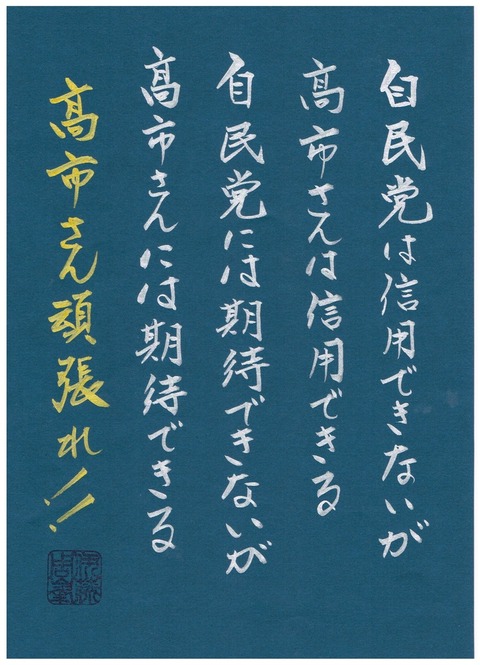 自民党は信用できないが
高市さんは信用できる
自民党には期待できないが
高市さんには期待できる
高市さん頑張れ!!